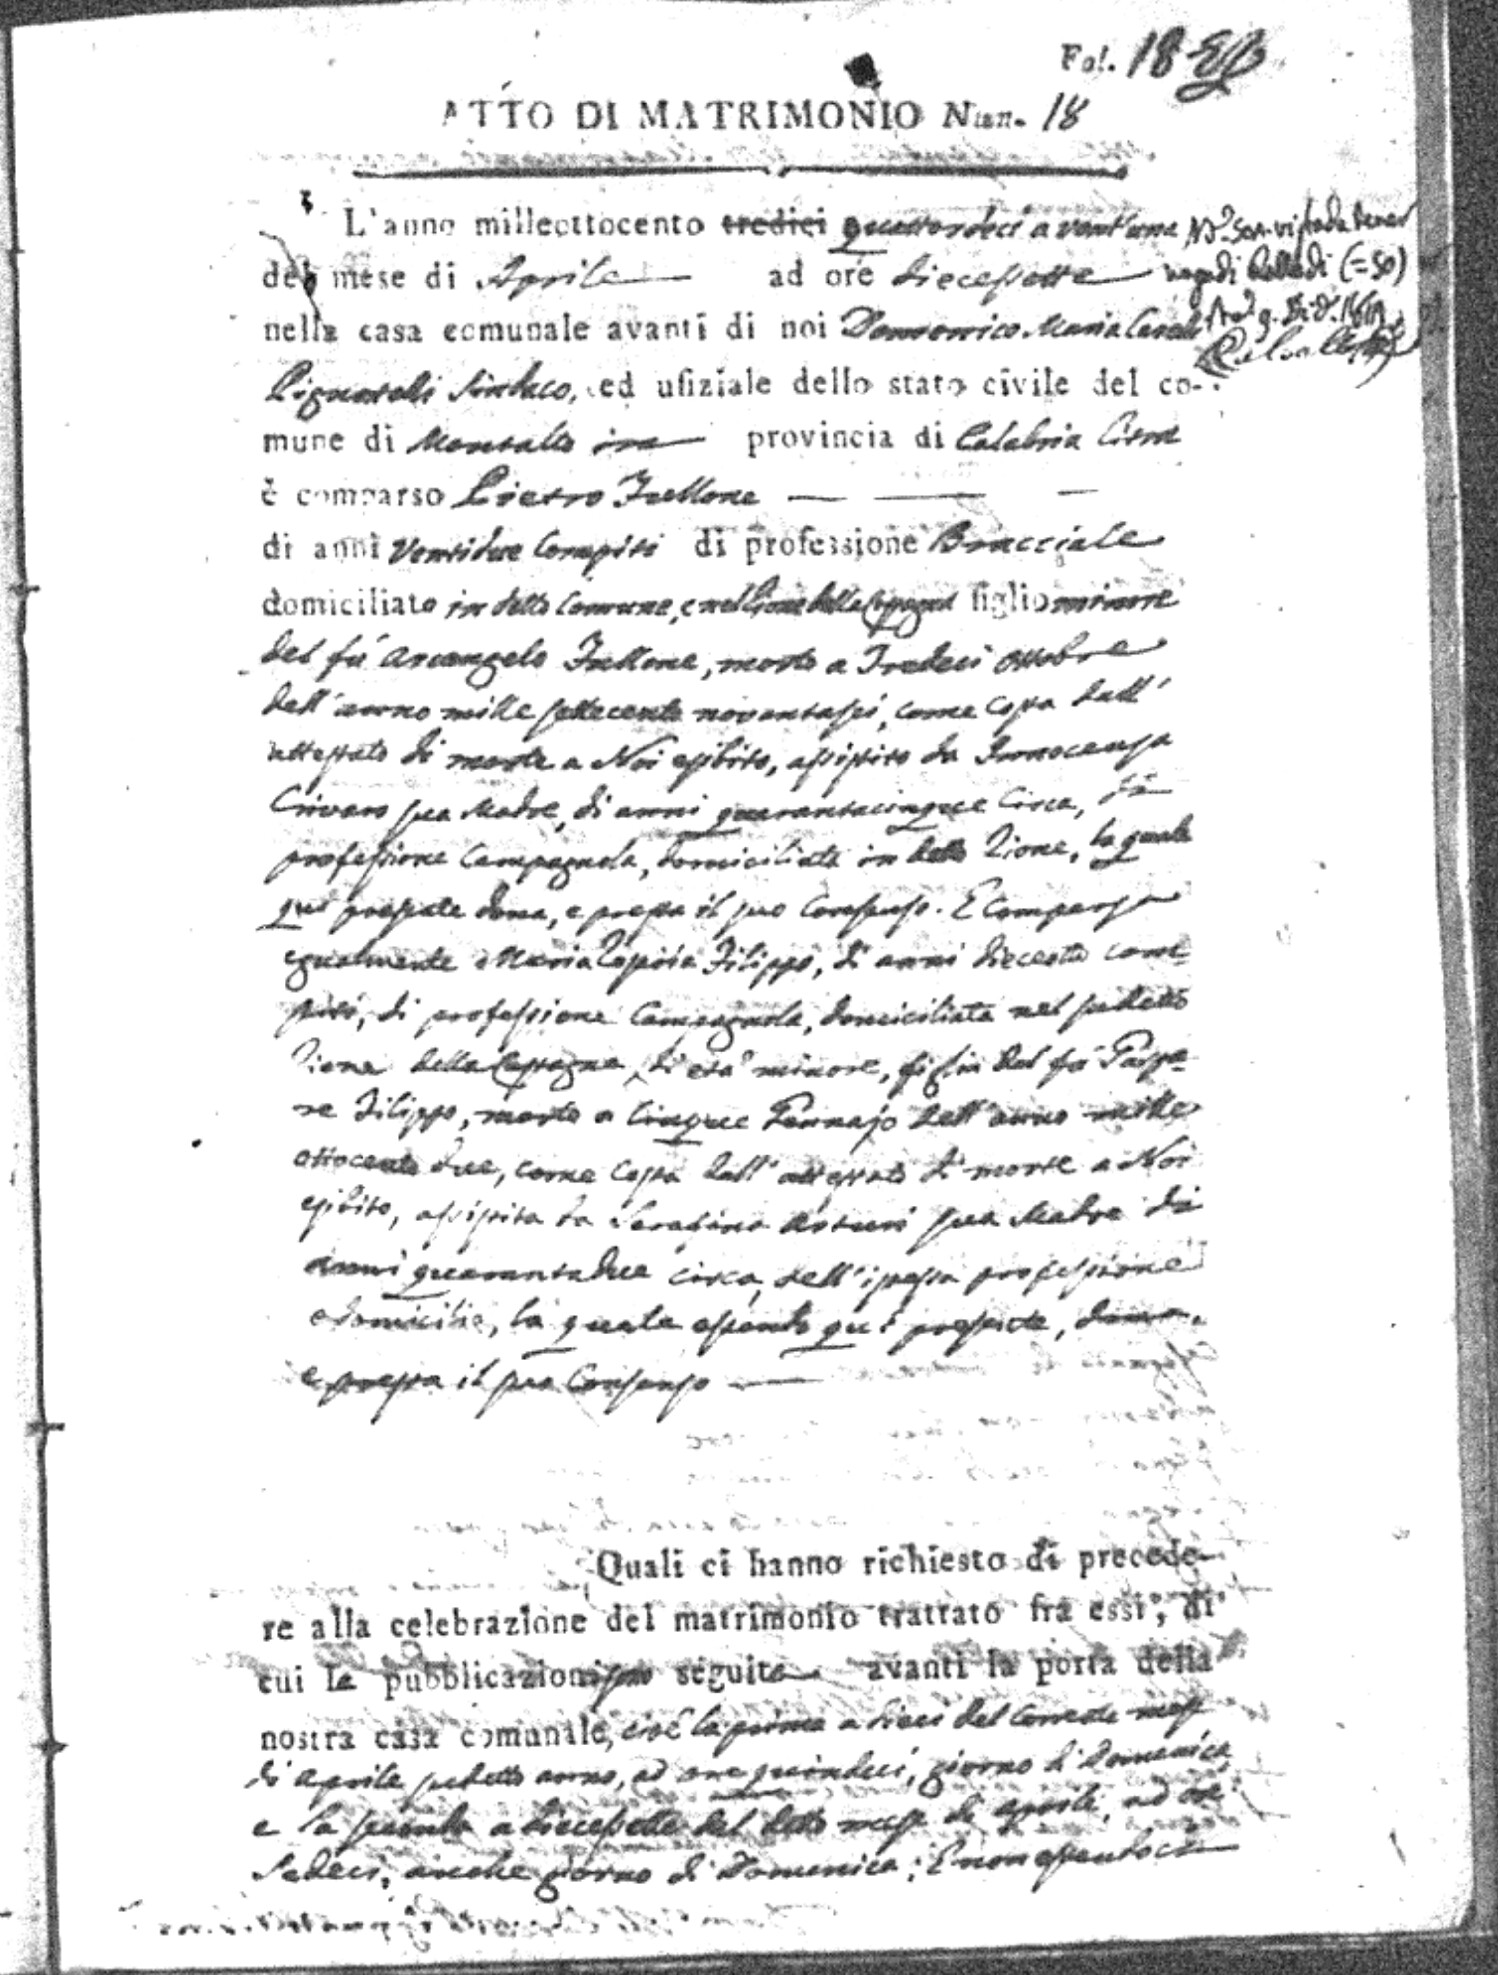 Fol. 18
ATTO DI MATRIMONIO Num. 18
L'anno milleottocento tredici quattordeci a vent'uno
del mese di Aprile ad ore diecessette
nella casa comunale avanti di noi Domenico Maria
Pignatelli Sindaco, ed ufiziale dello stato civile del co-
mune di Montalto provincia di Calabria Citra
è comparso Pietro Fullone
di anni Ventidue Compiti di professione Bracciale
domiciliato in detto Comune, e nel Rione della figlio minore
del fù Arcangelo Fullone, morto a Tredeci Ottobre
dell'anno mille settecento novantasei, come costa dall'
attestato di morte a Noi esibito, assistito da Innocenza
Crivaro sua Madre, di anni quarantacinque circa, di
professione Campagnola, domiciliata in detto Rione, la quale
qui presente dona, e presta il suo Consenso. E Comparsa
egualmente Maria Filippo, di anni diecesette com-
piti, di professione Campagnola, domiciliata nel sudetto
Rione della di età minore, figlia del fù Gaspa-
re Filippo, morto a Cinque Gennajo dell'anno mille
ottocento due, come costa dall'attestato di morte a Noi
esibito, assistita da Serafina Arturi sua Madre di
anni quarantadue circa, dell'istessa professione
e domicilio, la quale essendo quì presente, dona,
e presta il suo Consenso
Quali ci hanno richiesto di precede-
re alla celebrazione del matrimonio trattato fra essi, di
cui le pubblicazioni sono seguite avanti la porta della
nostra casa comunale, cioè la prima a dieci del Corrente mese
di Aprile sudetto anno, ad ore quindeci, giorno di Domenica,
e la seconda a diecesette del detto mese di Aprile, ad ore
Sedeci, anche giorno di Domenica; E non essendoci